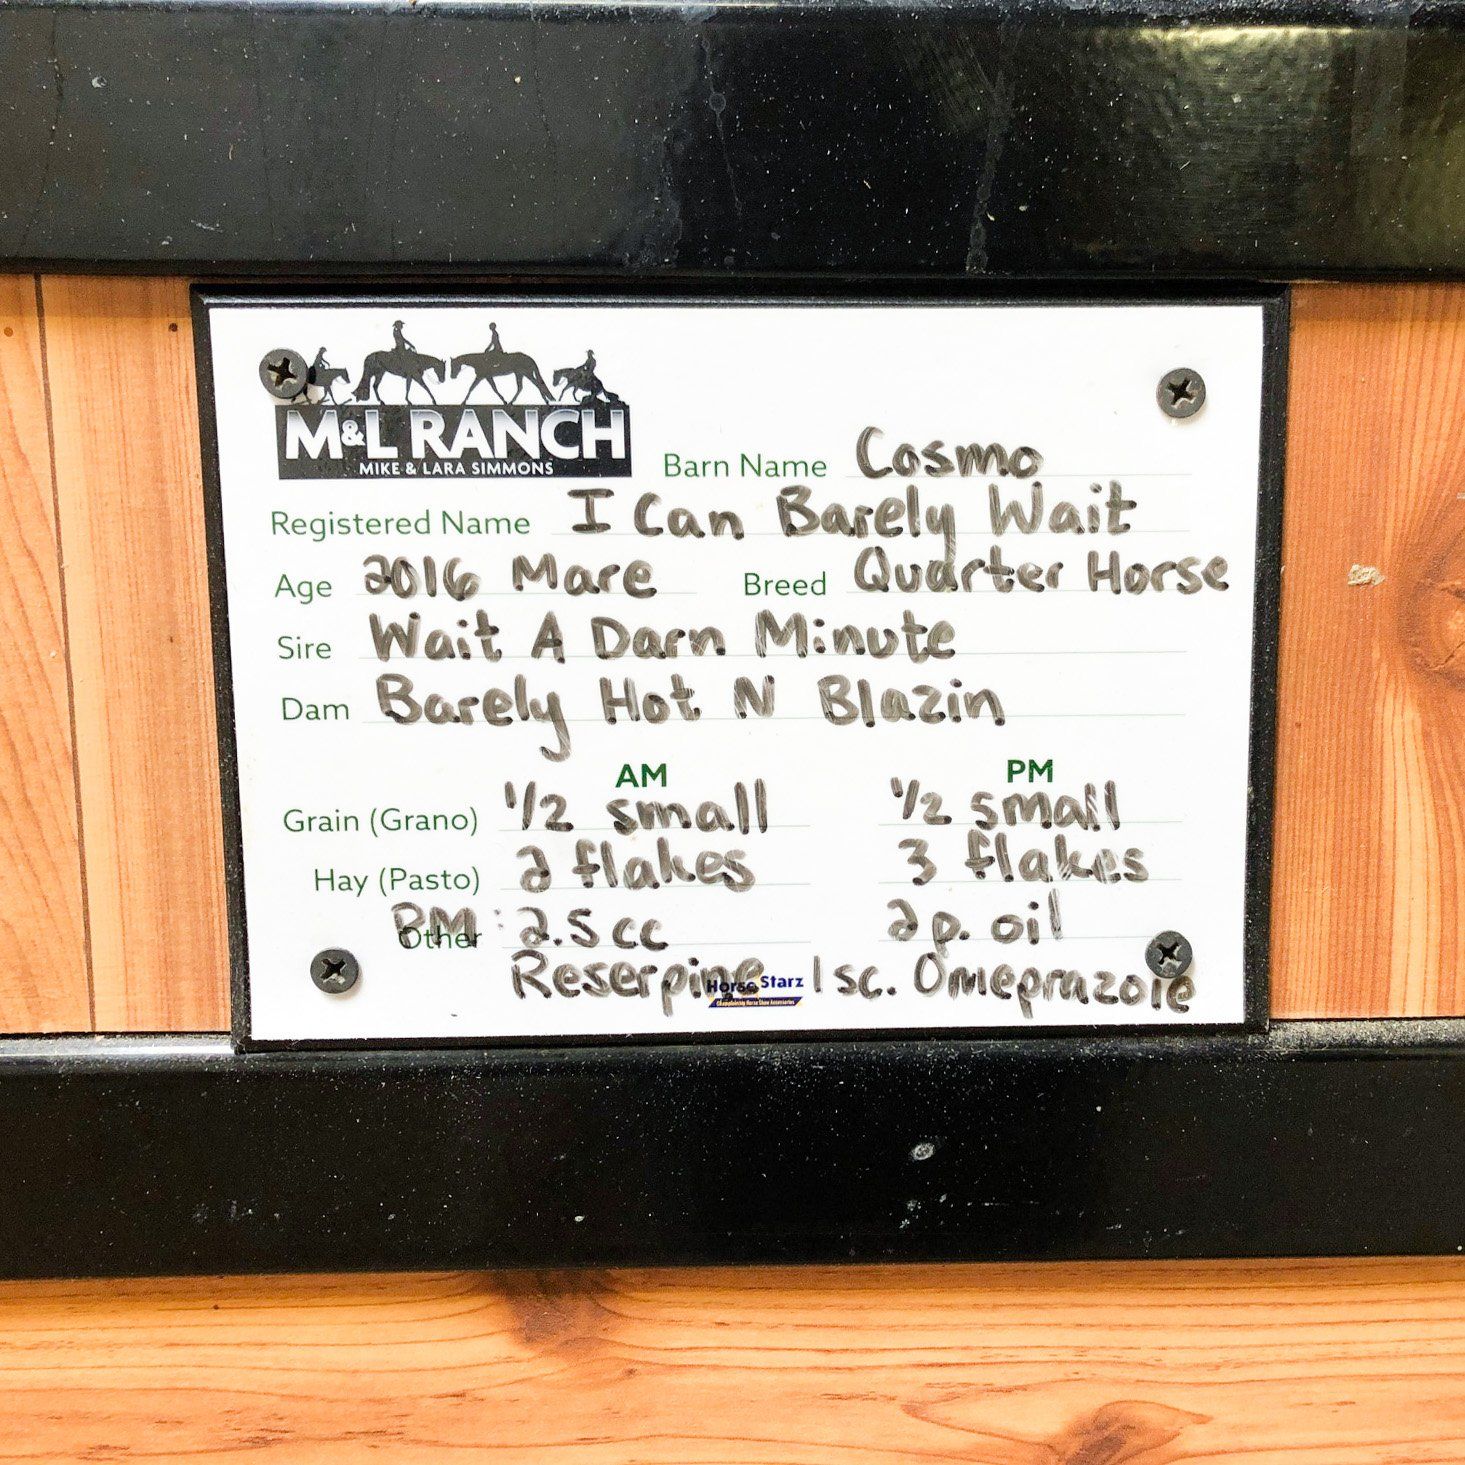 M&L RANCH
MIKE & LARA SIMMONS
Barn Name Cosmo
Registered Name I Can Barely Wait
Age 2016 Mare Breed Quarter Horse
Sire Wait A Darn Minute
Dam Barely Hot N Blazin
AM PM
Grain (Grano) 1/2 small 1/2 small
Hay (Pasto) 2 flakes 3 flakes
Other PM: 2.5cc 2p. oil
Reserpine 1sc. Omeprazole
Horse Starz